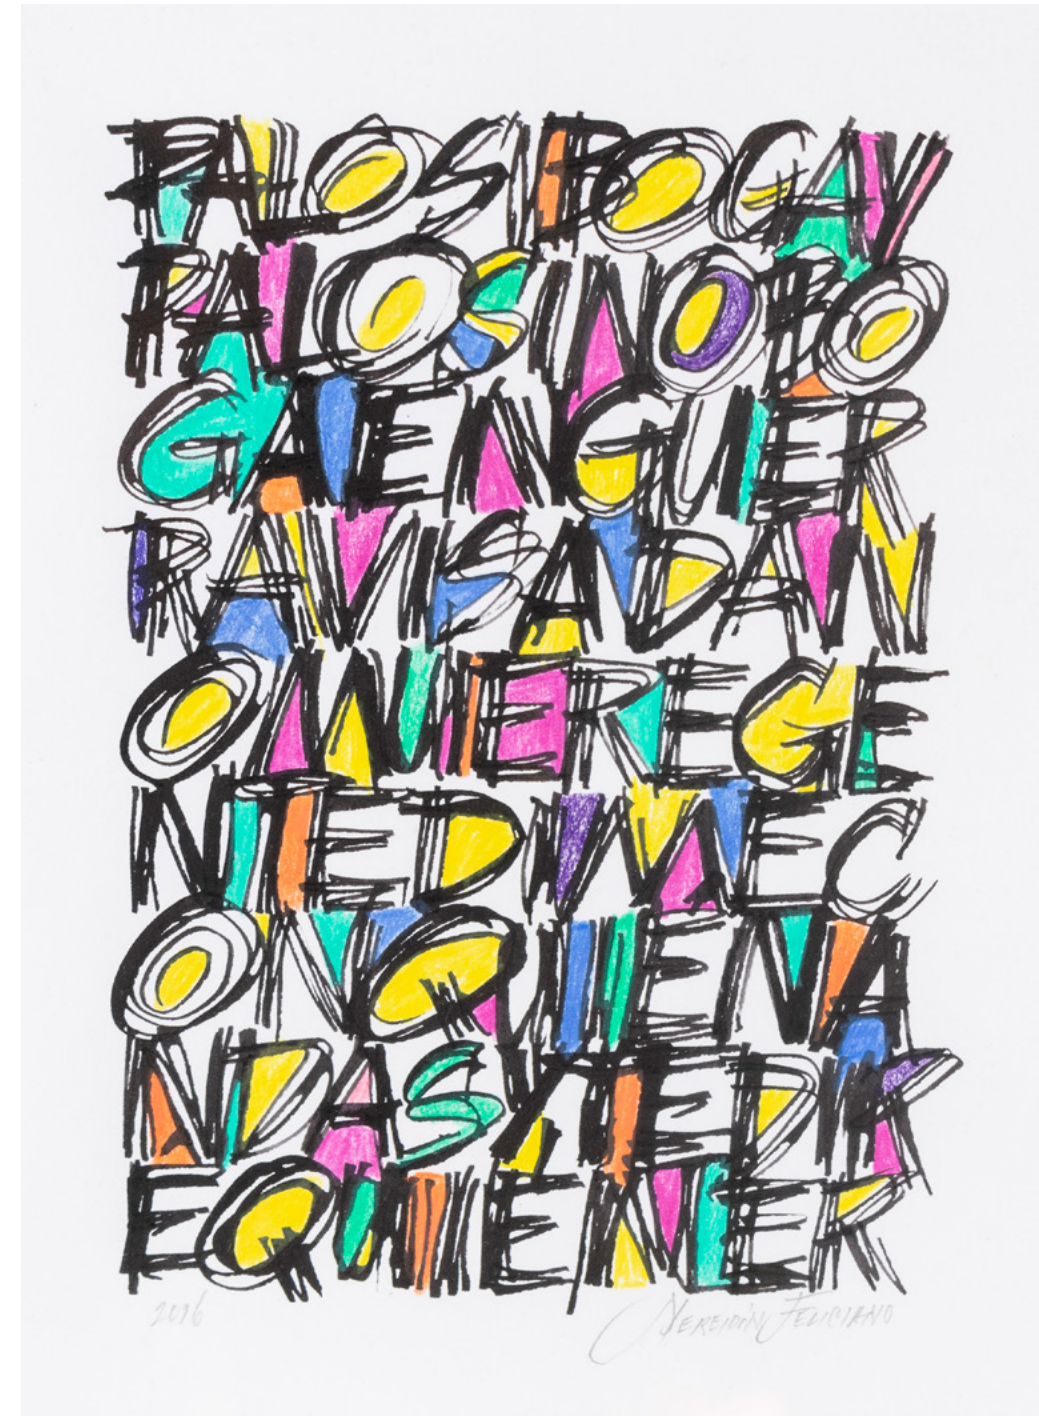 PALOSIBOGAY
PALOSINOBO
GAENGUER
RAVISADAN
OMUEREGE
NTEDIMEC
ONQUIENA
NDASYTEDIR
EQUIENER
2016 Nereidín Feliciano